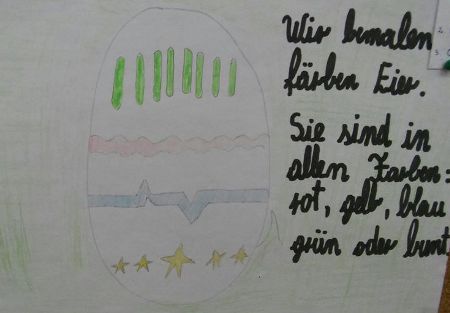 Wir bemalen
färben Eier.
Sie sind in
allen Farben:
rot, gelb, blau
grün oder bunt
2
3